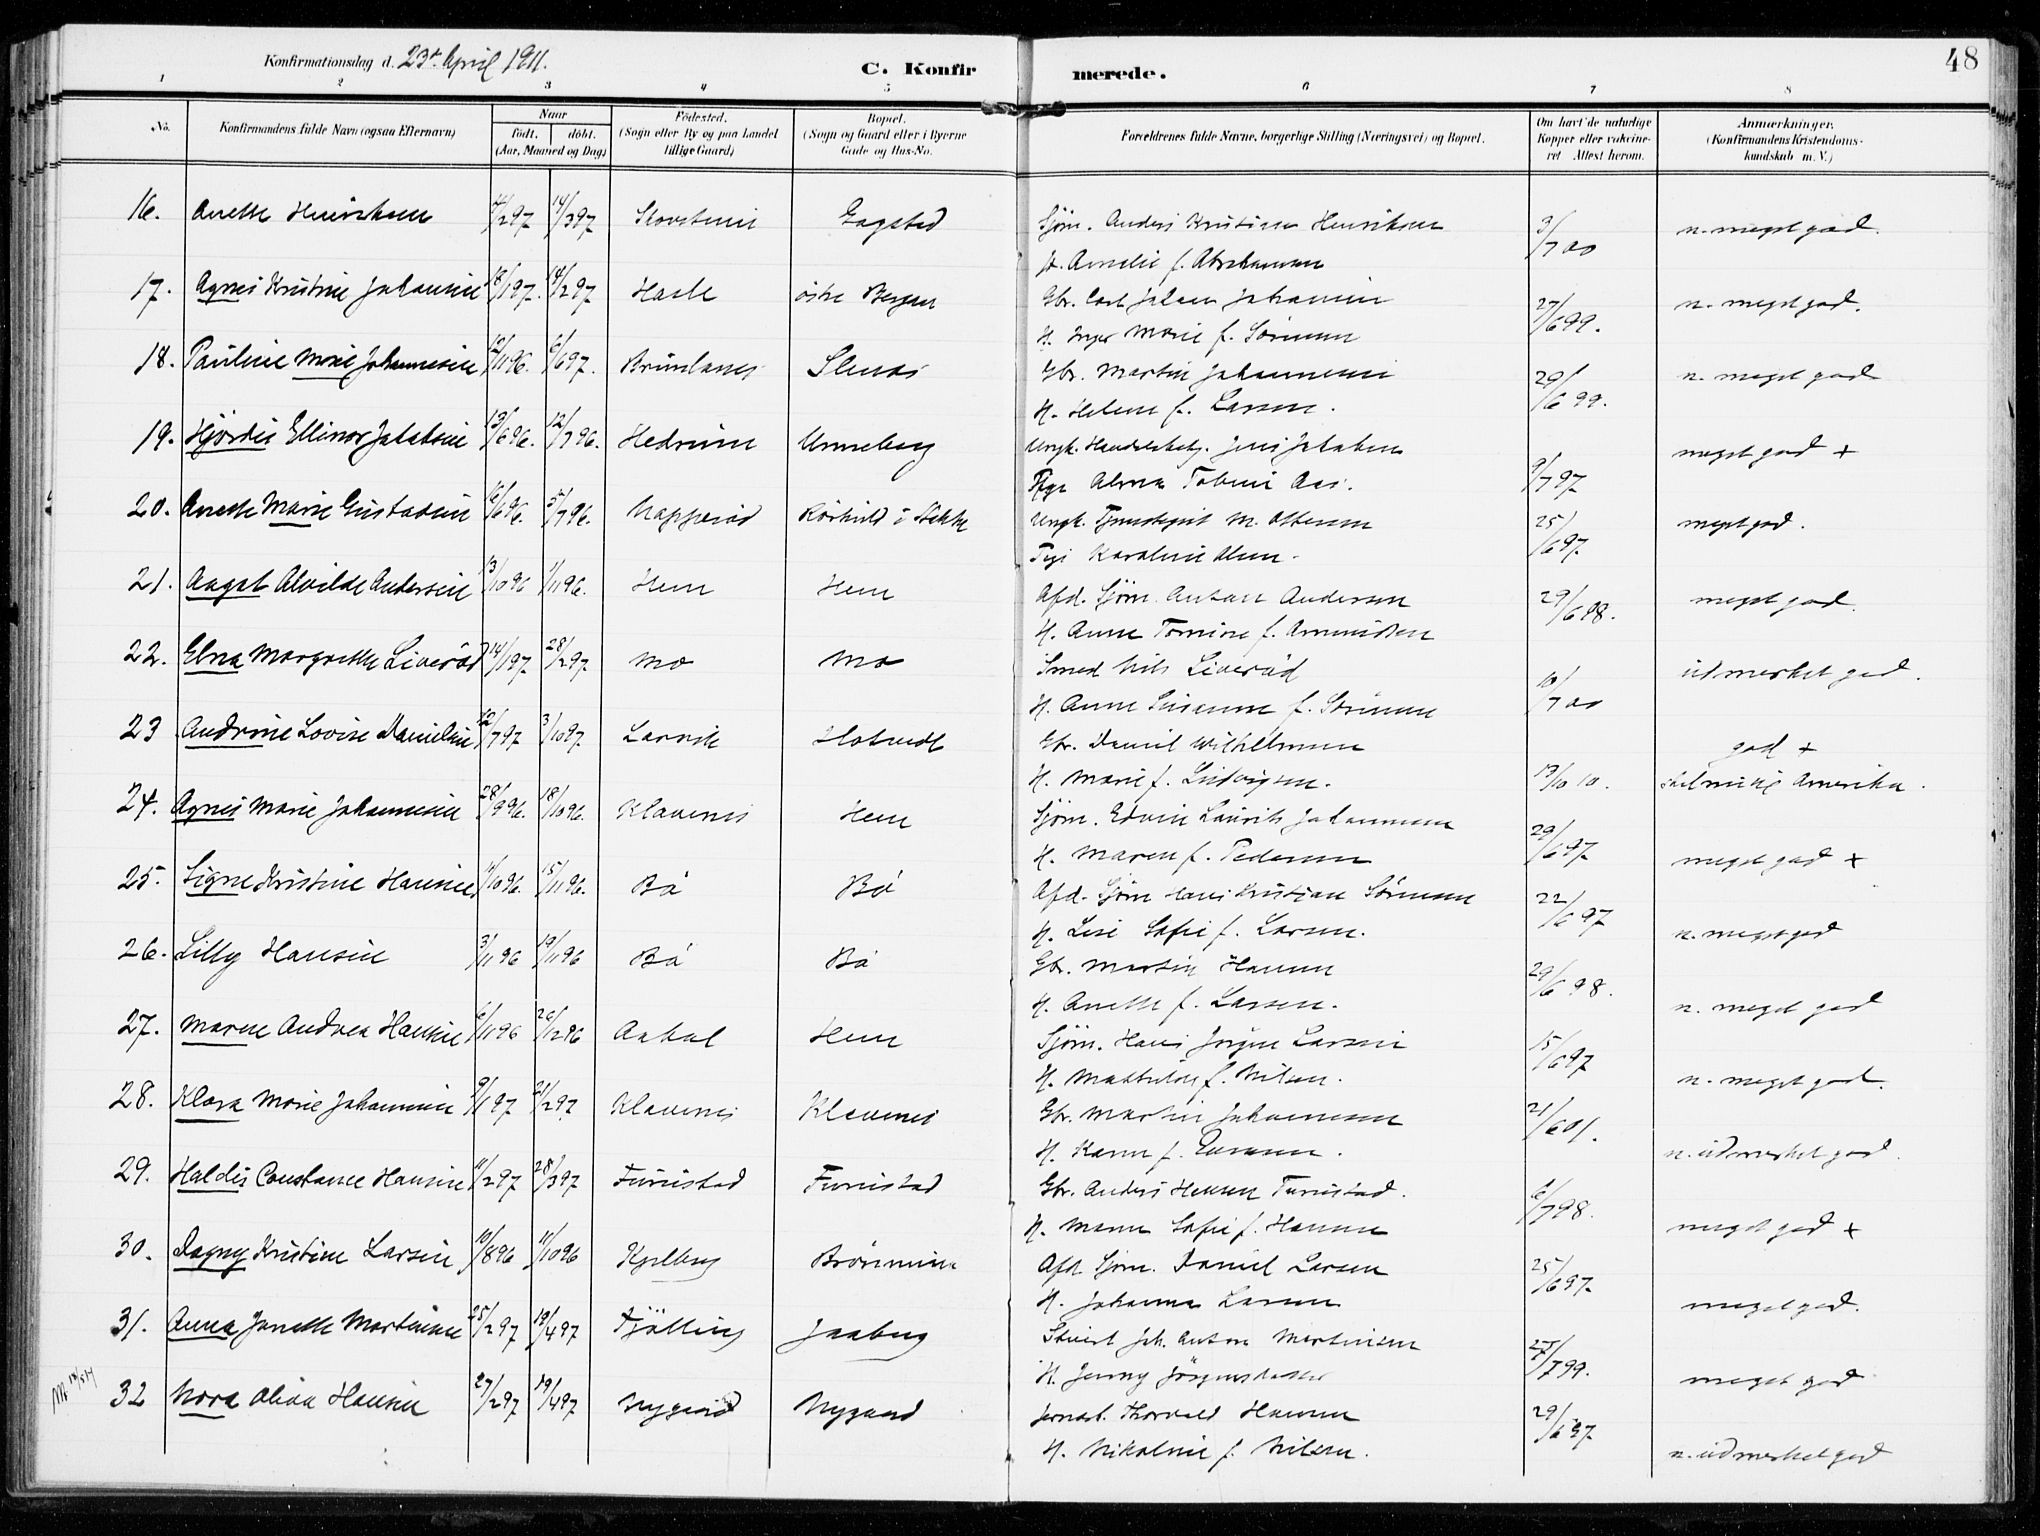 Konfirmationsdag d. 23de April 1911.
C. Konfirmerede.
48
1 2 3 4 5 6 7 8
No.
Konfirmandens fulde Navn (ogsaa Efternavn)
Naar
født. døbt.
(Aar, Maaned og Dag)
Fødested.
(Sogn eller By og paa Landet
tillige Gaard)
Bopæl.
(Sogn og Gaard eller i Byerne
Gade og Hus-No.
Forældrenes fulde Navne, borgerlige Stilling (Næringsvei) og Bopæl.
Om havt de naturlige
Kopper eller vakcine-
ret Attest herom.
Anmærkninger.
(Konfirmandens Kristendoms-
kundskab m. V.)
16. Anette Henriksen /2 97 14/3 97 Gogstad Sjøm. Anders Kristian Henriksen 3/7 00 n. meget god.
H. Amelie f. Abrahamsen
17. Agnes Kristine Johansen /1 97. 14/2 97 Hasle østre Bergan Gbr. Carl Johan Johansen 27/6 99. n. meget god.
H. Inger Marie f. Sørensen
18. Pauline Marie Johannesen /11 96. 6/6 97. Brunlanes Gbr. Martin Johannesen 29/6 99. n. meget god
H. Helene f. Larsen.
19. Hjørdis Ellinor Jakobsen 13/6 96. 12/7 96. Hedrum Unneberg Ungk. Jens Jakobsen 9/7 97 meget god +
Pige Alma Tobine Aas.
20. Anette Marie Gustavsen /6 96. 5/7 96. Napperød i Stokke Ungk. M. Ottersen 25/6 97. meget god.
Pige Karoline Olsen.
21. Aagot Alvilde Andersen 13/10 96 1/11 96. Hem Hem Afd. Sjøm. Anton Andersen 29/6 98. meget god.
H. Anne Tomine f. Amundsen
22. Elna Margrethe Liverød 14/1 97. 28/2 97. Mo Mo Smed Nils Liverød 10/7 00 udmerket god.
H. Anne Susanne f. Sørensen
23 Andrine Lovise Danielsen 12/7 97 3/10 97. Larvik Hotvedt Gbr. Daniel Wilhelmsen 13/10 10. god +
H. Marie f. Ludvigsen. Amerika.
24. Agnes Marie Johannesen 28/9 96. 18/10 96. Klavenes Hem Sjøm. Edvin Laurits Johannesen 29/6 97 meget god +
H. Maren f. Pedersen
25. Signe Kristine Hansen /10 96. 15/11 96. Bø Bø Afd. Sjøm Hans Kristian Sørensen 22/6 97 n. meget god
H. Lise Sofie f. Larsen.
26. Lilly Hansen 3/11 96 19/11 96 Bø Bø Gbr. Martin Hansen 29/6 98. n. meget god
H. Anette f. Larsen.
27. Maren Andrea Hansen 6/11 96 26/12 96 Hem Sjøm. Hans Jørgen Larsen 15/6 97 n. meget god.
H. Mathilde f. Nilsen.
28. Klara Marie Johannesen 9/1 97 21/2 97 Klavenes Klavenes Gbr. Martin Johannesen 21/6 01. n. udmerket god.
H. Karen f. Evensen.
29. Haldis Constance Hansen 11/2 97 28/3 97 Furustad Furustad Gbr. Anders Hansen Furustad. 6/7 98. meget god +
H. Maren Sofie f. Hansen
30. Dagny Kristine Larsen 10/8 96 11/10 96 Kjelberg Afd Sjøm. Daniel Larsen 25/6 97. meget god.
H. Johanne Larsen
31. Anna Janette Martinsen 25/2 97 19/4 97 Tjølling Jaaberg Stuert Joh. Anton Martinsen /7 99. meget god
H. Jenny Jørgensdatter
32 Nora Olava Hansen 27/2 97 19/4 97 Nygaard Nygaard Jernarb. Thorvald Hansen 29/6 97. n. udmerket god
H. Nikoline f. Nilsen.